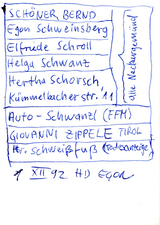 SCHÖNER BERND
Egon Schweinsberg
Elfriede Schroll
Helga Schwanz
Hertha Schorsch
Kümmelbacherstr. 11
alle Neckargemünd
Auto-Schwanzl (FFM)
GIOVANNI ZIPPELE TIROL
Hr. Schweißfuß (Todesanzeige)
1 XII 92 HD Egon